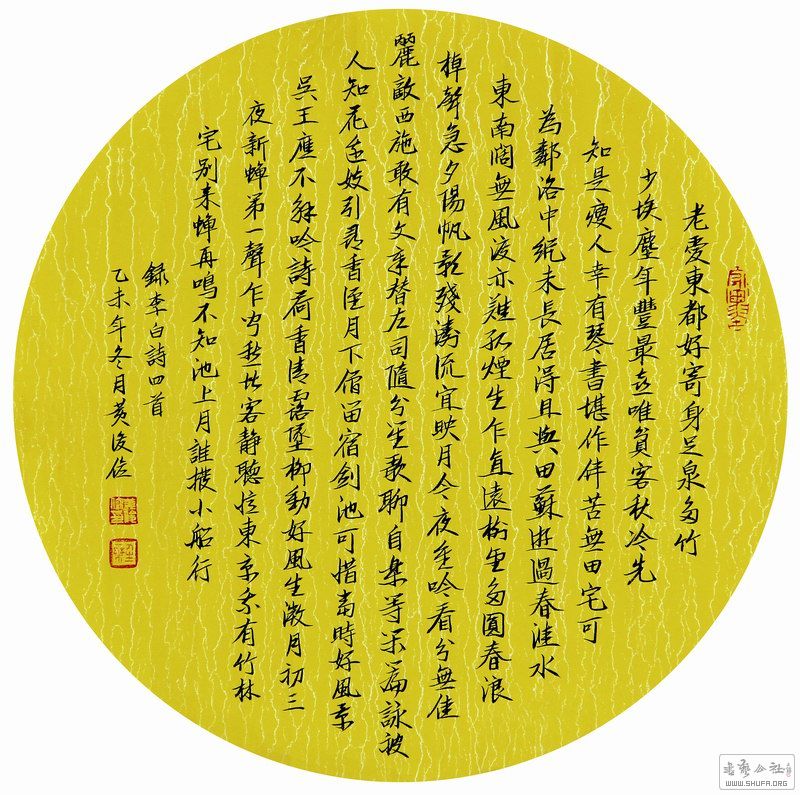 老愛東都好寄身足泉多竹
少埃塵年豐最喜唯貧客秋冷先
知是瘦人幸有琴書堪作伴苦無田宅可
為鄰洛中縱未長居得且與田蘇遊過春洼水
東南闊無風渡亦難孤煙生乍直遠樹望多圓春浪
棹聲急夕陽帆影殘清流宜映月今夜重吟看兮無佳
麗敵西施敢有文章替左司隨兮笙歌聊自樂等閑篇詠被
人知花邊妓引尋香徑月下僧留宿劍池可惜當時好風景
吳王應不解吟詩荷香清露墜柳動好風生微月初三
夜新蟬第一聲乍聞愁北客靜聽憶東京我有竹林
宅別來蟬再鳴不知池上月誰撥小船行
錄李白詩四首
乙未年冬月黃俊佐
書藝公社
WWW.SHUFA.ORG